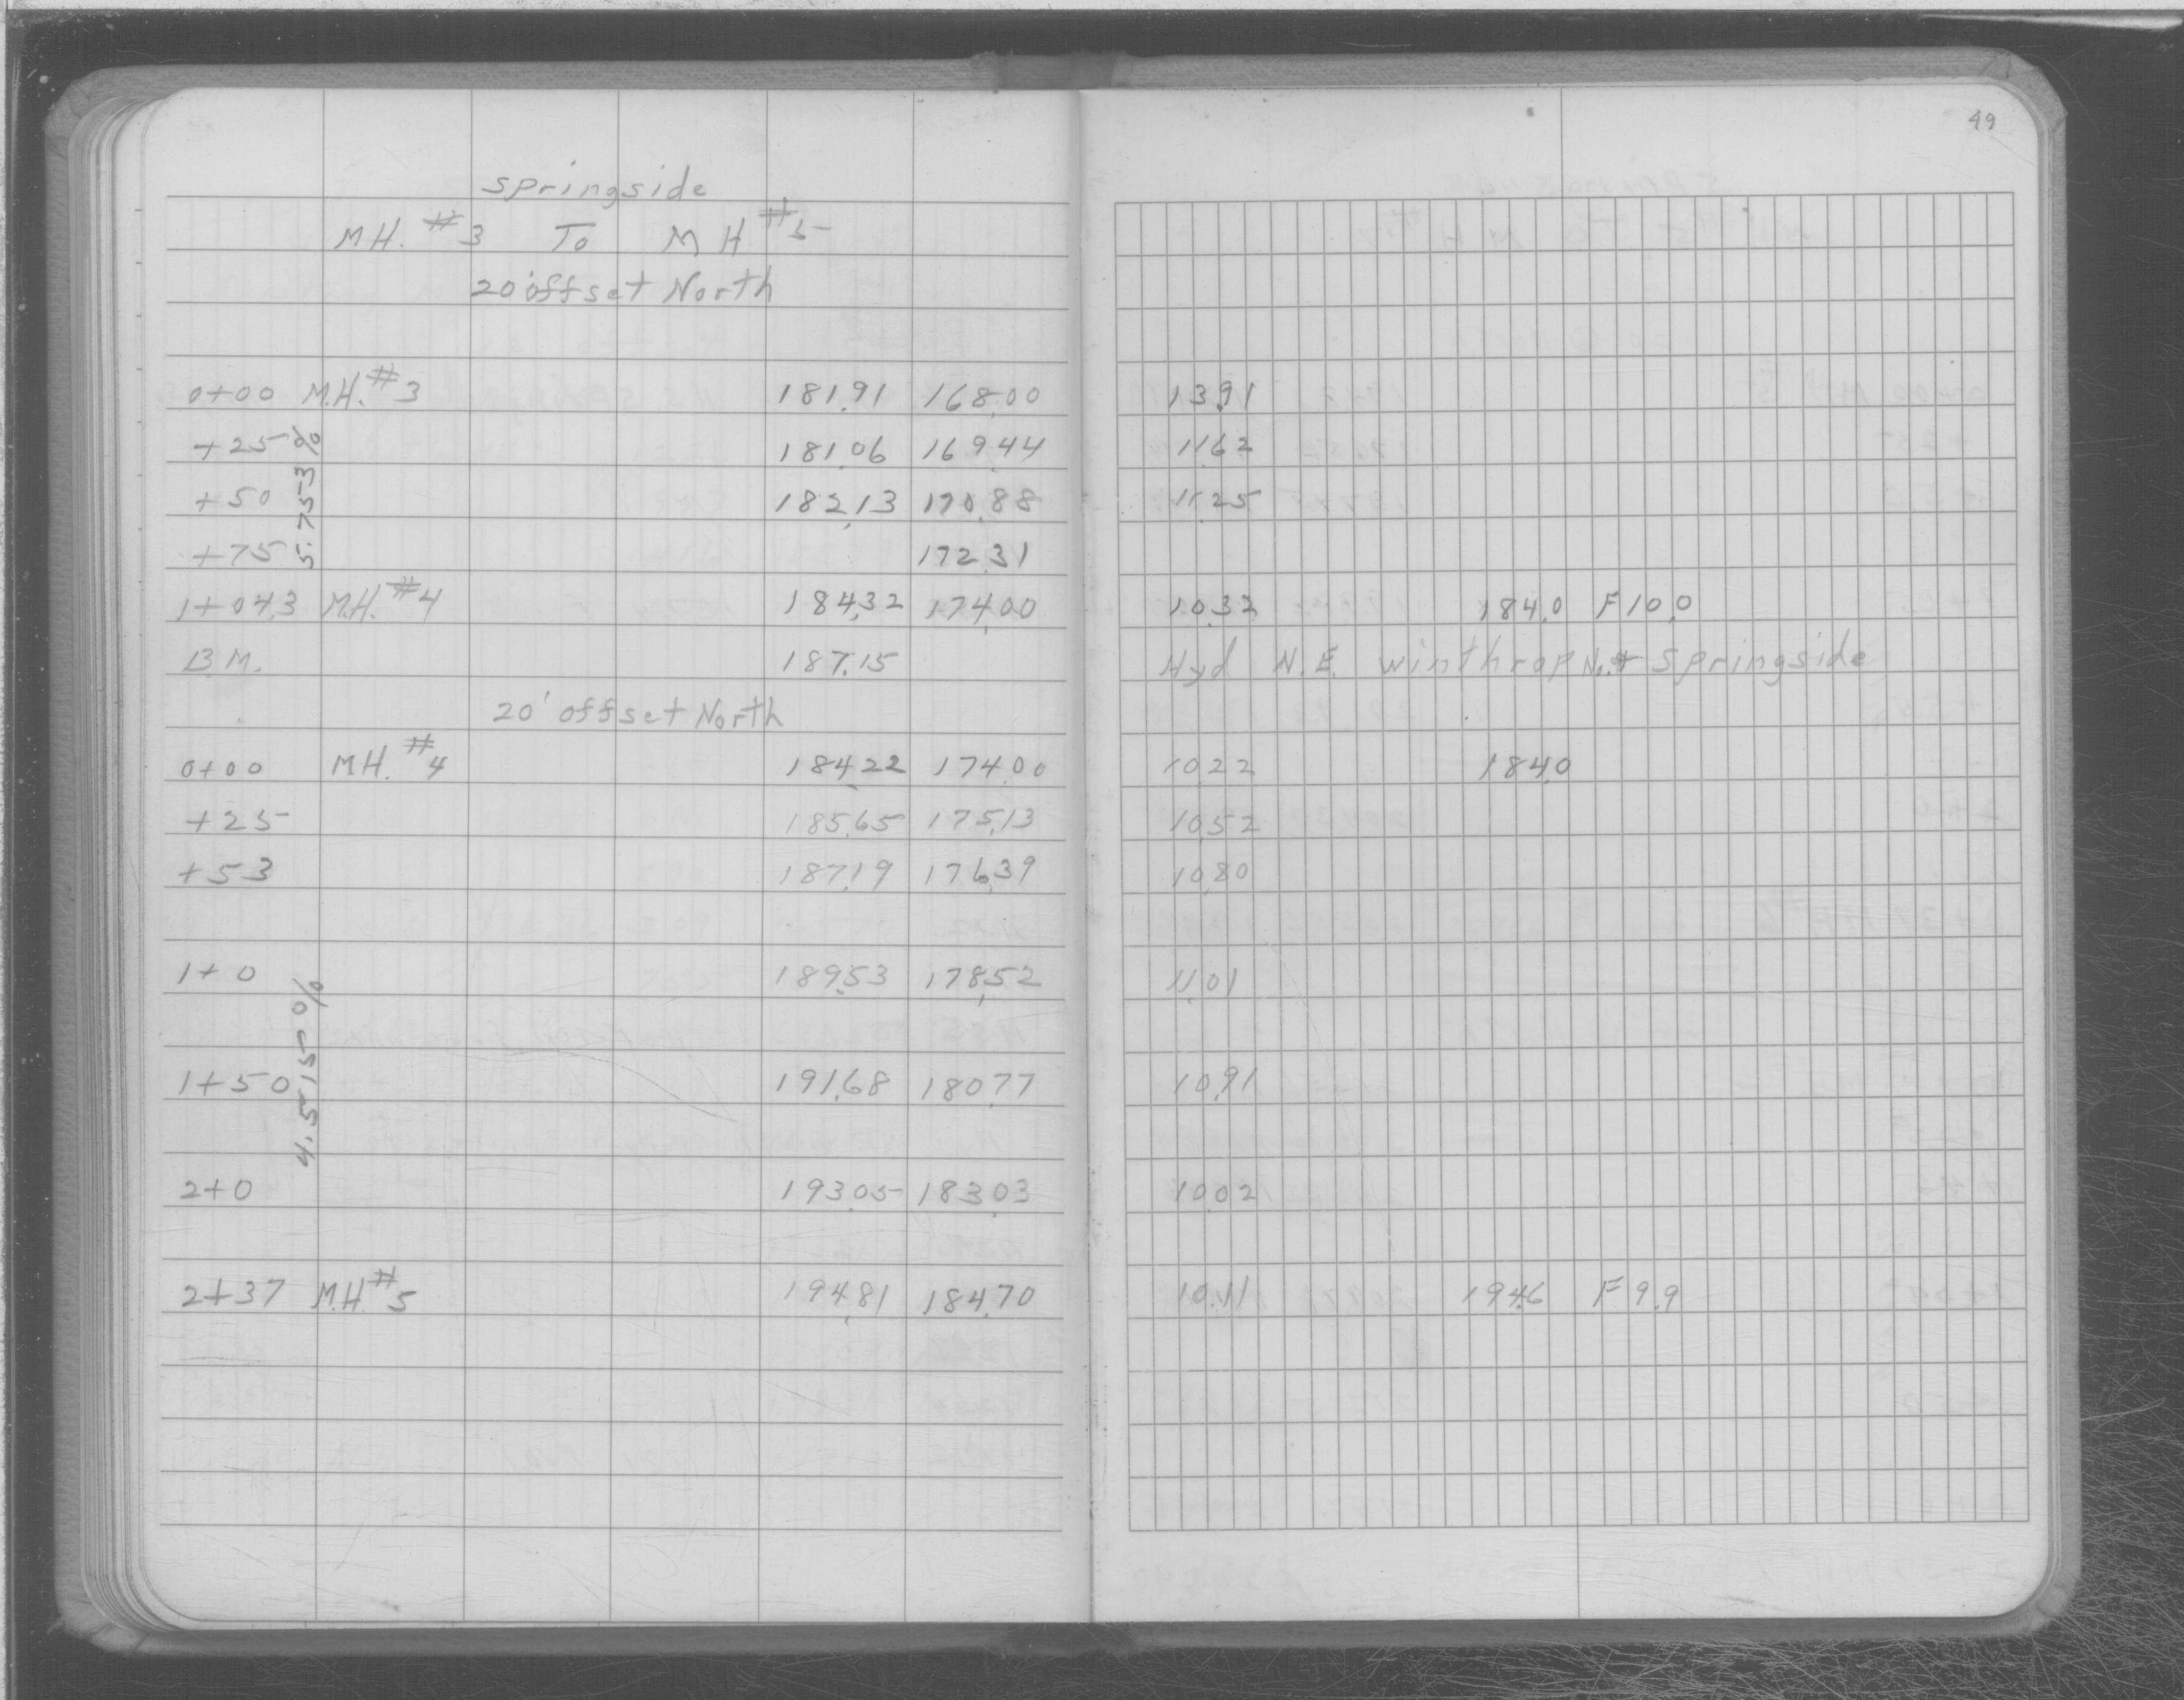 49
Springside
M.H. #3 To MH #5
20' offset North
0+00 M.H. #3 181.91 168.00 13.91
+25 181.06 169.44 11.62
+50 182.13 170.88 11.25
+75 172.31
5.753%
1+04.3 M.H. #4 184.32 174.00 10.32 184.0 F 10.0
B.M. 187.15 Hyd N.E. Winthrop No. + Springside
20' offset North
0+00 MH. #4 184.22 174.00 10.22 184.0
+25 185.65 175.13 10.52
+53 187.19 176.39 10.80
1+0 189.53 178.52 11.01
4.515%
1+50 191.68 180.77 10.91
2+0 193.05 183.03 10.02
2+37 M.H. #5 194.81 184.70 10.11 194.6 F 9.9